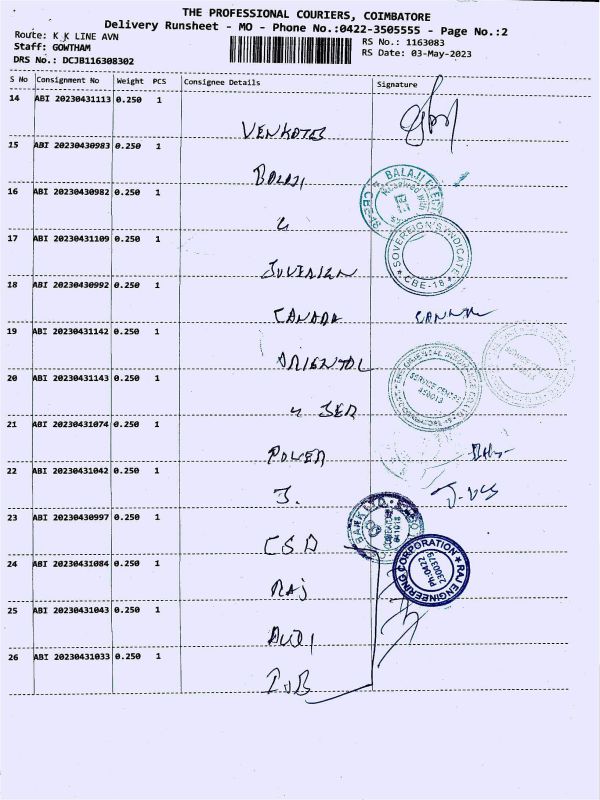 THE PROFESSIONAL COURIERS, COIMBATORE
Delivery Runsheet - MO - Phone No.:0422-3505555 - Page No.:2
Route: K K LINE AVN
RS No.: 1163083
Staff: GOWTHAM
RS Date: 03-May-2023
DRS No.: DCJB116308302
S No Consignment No Weight PCS Consignee Details Signature
14 ABI 20230431113 0.250 1
VENKATES
15 ABI 20230430983 0.250 1
BALAJI
BALAJI
16 ABI 20230430982 0.250 1
17 ABI 20230431109 0.250 1
SOVEREIGN SYNDICATE
CBE-18
18 ABI 20230430992 0.250 1
CANARA
19 ABI 20230431142 0.250 1
ORIENTAL
SERVICE CENTRE
20 ABI 20230431143 0.250 1
SERVICE CENTRE
450013
21 ABI 20230431074 0.250 1
POWER
22 ABI 20230431042 0.250 1
J.
23 ABI 20230430997 0.250 1
CSB
24 ABI 20230431084 0.250 1
RAJ ENGINEERING CORPORATION
Ph:0422
2300379
RAJ
25 ABI 20230431043 0.250 1
AUDI
26 ABI 20230431033 0.250 1